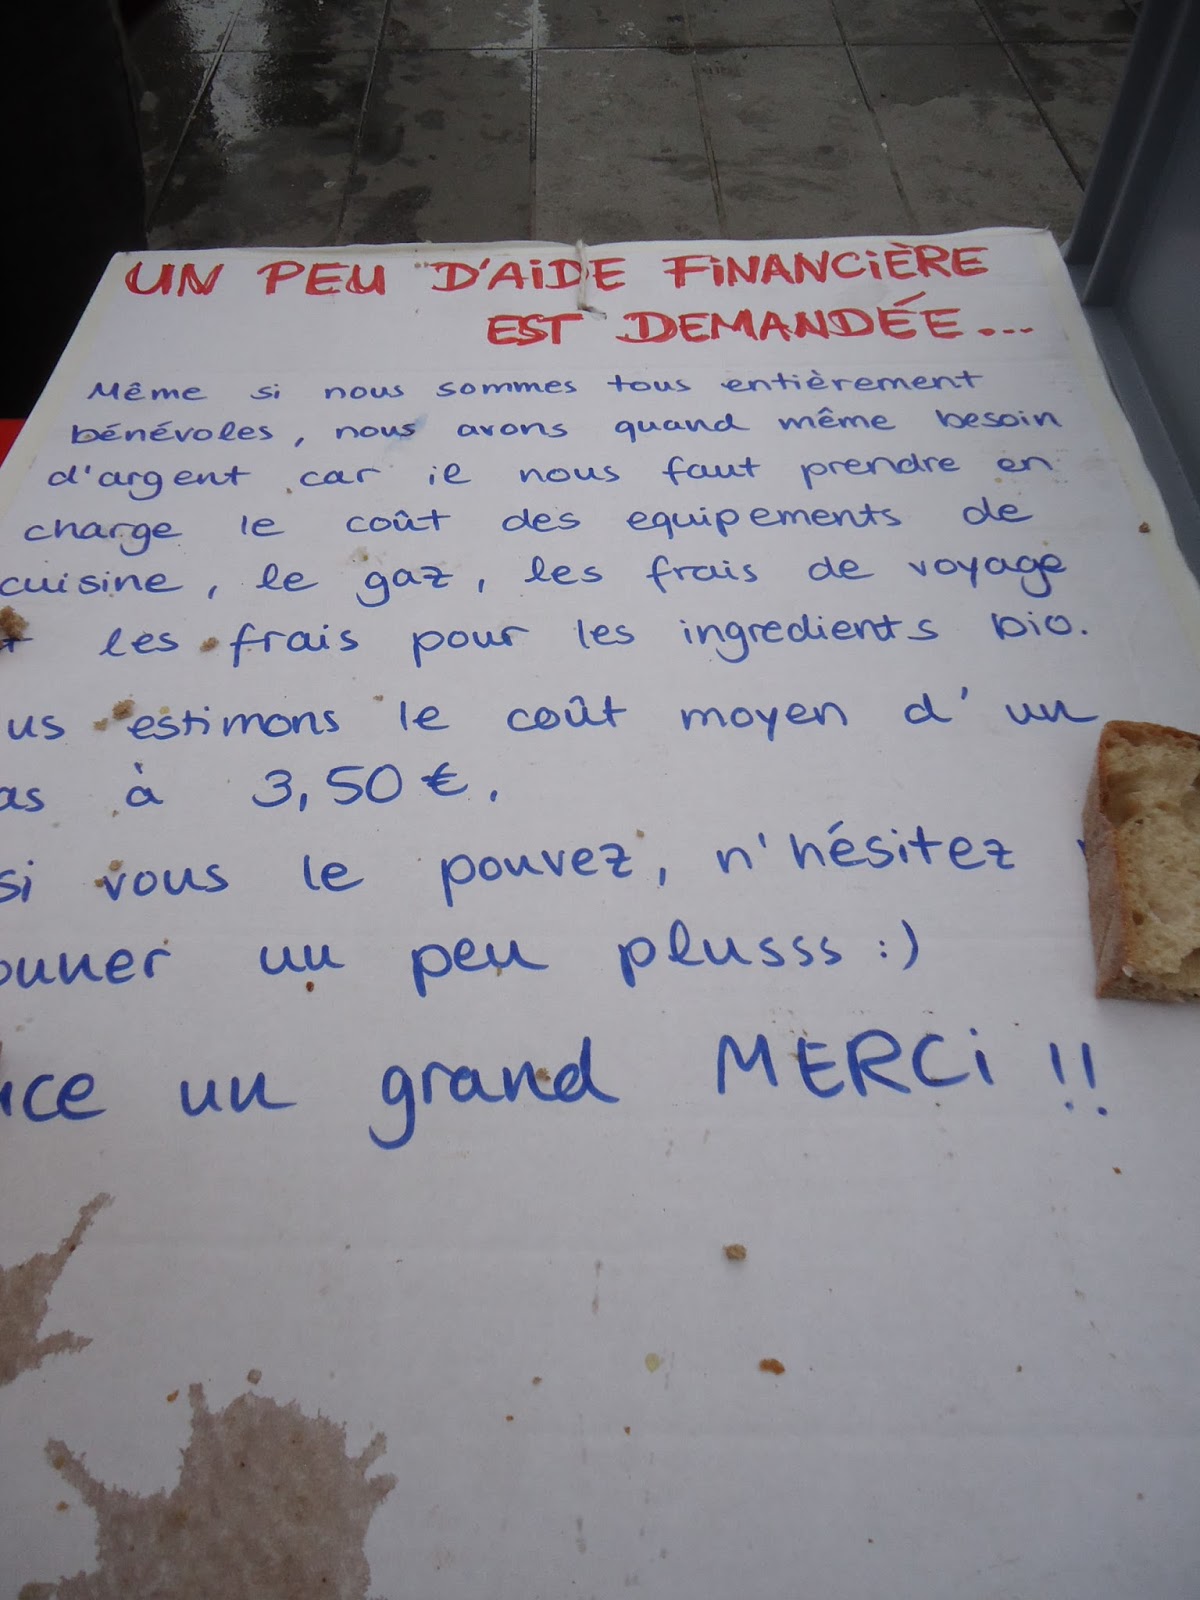 UN PEU D'AIDE FINANCIÈRE
EST DEMANDÉE...
Même si nous sommes tous entièrement
bénévoles, nous avons quand même besoin
d'argent car il nous faut prendre en
charge le coût des equipements de
cuisine, le gaz, les frais de voyage
les frais pour les ingredients bio.
us estimons le coût moyen d'un
as à 3,50€.
si vous le pouvez, n'hésitez
ouner un peu plusss :)
un grand MERCi !!